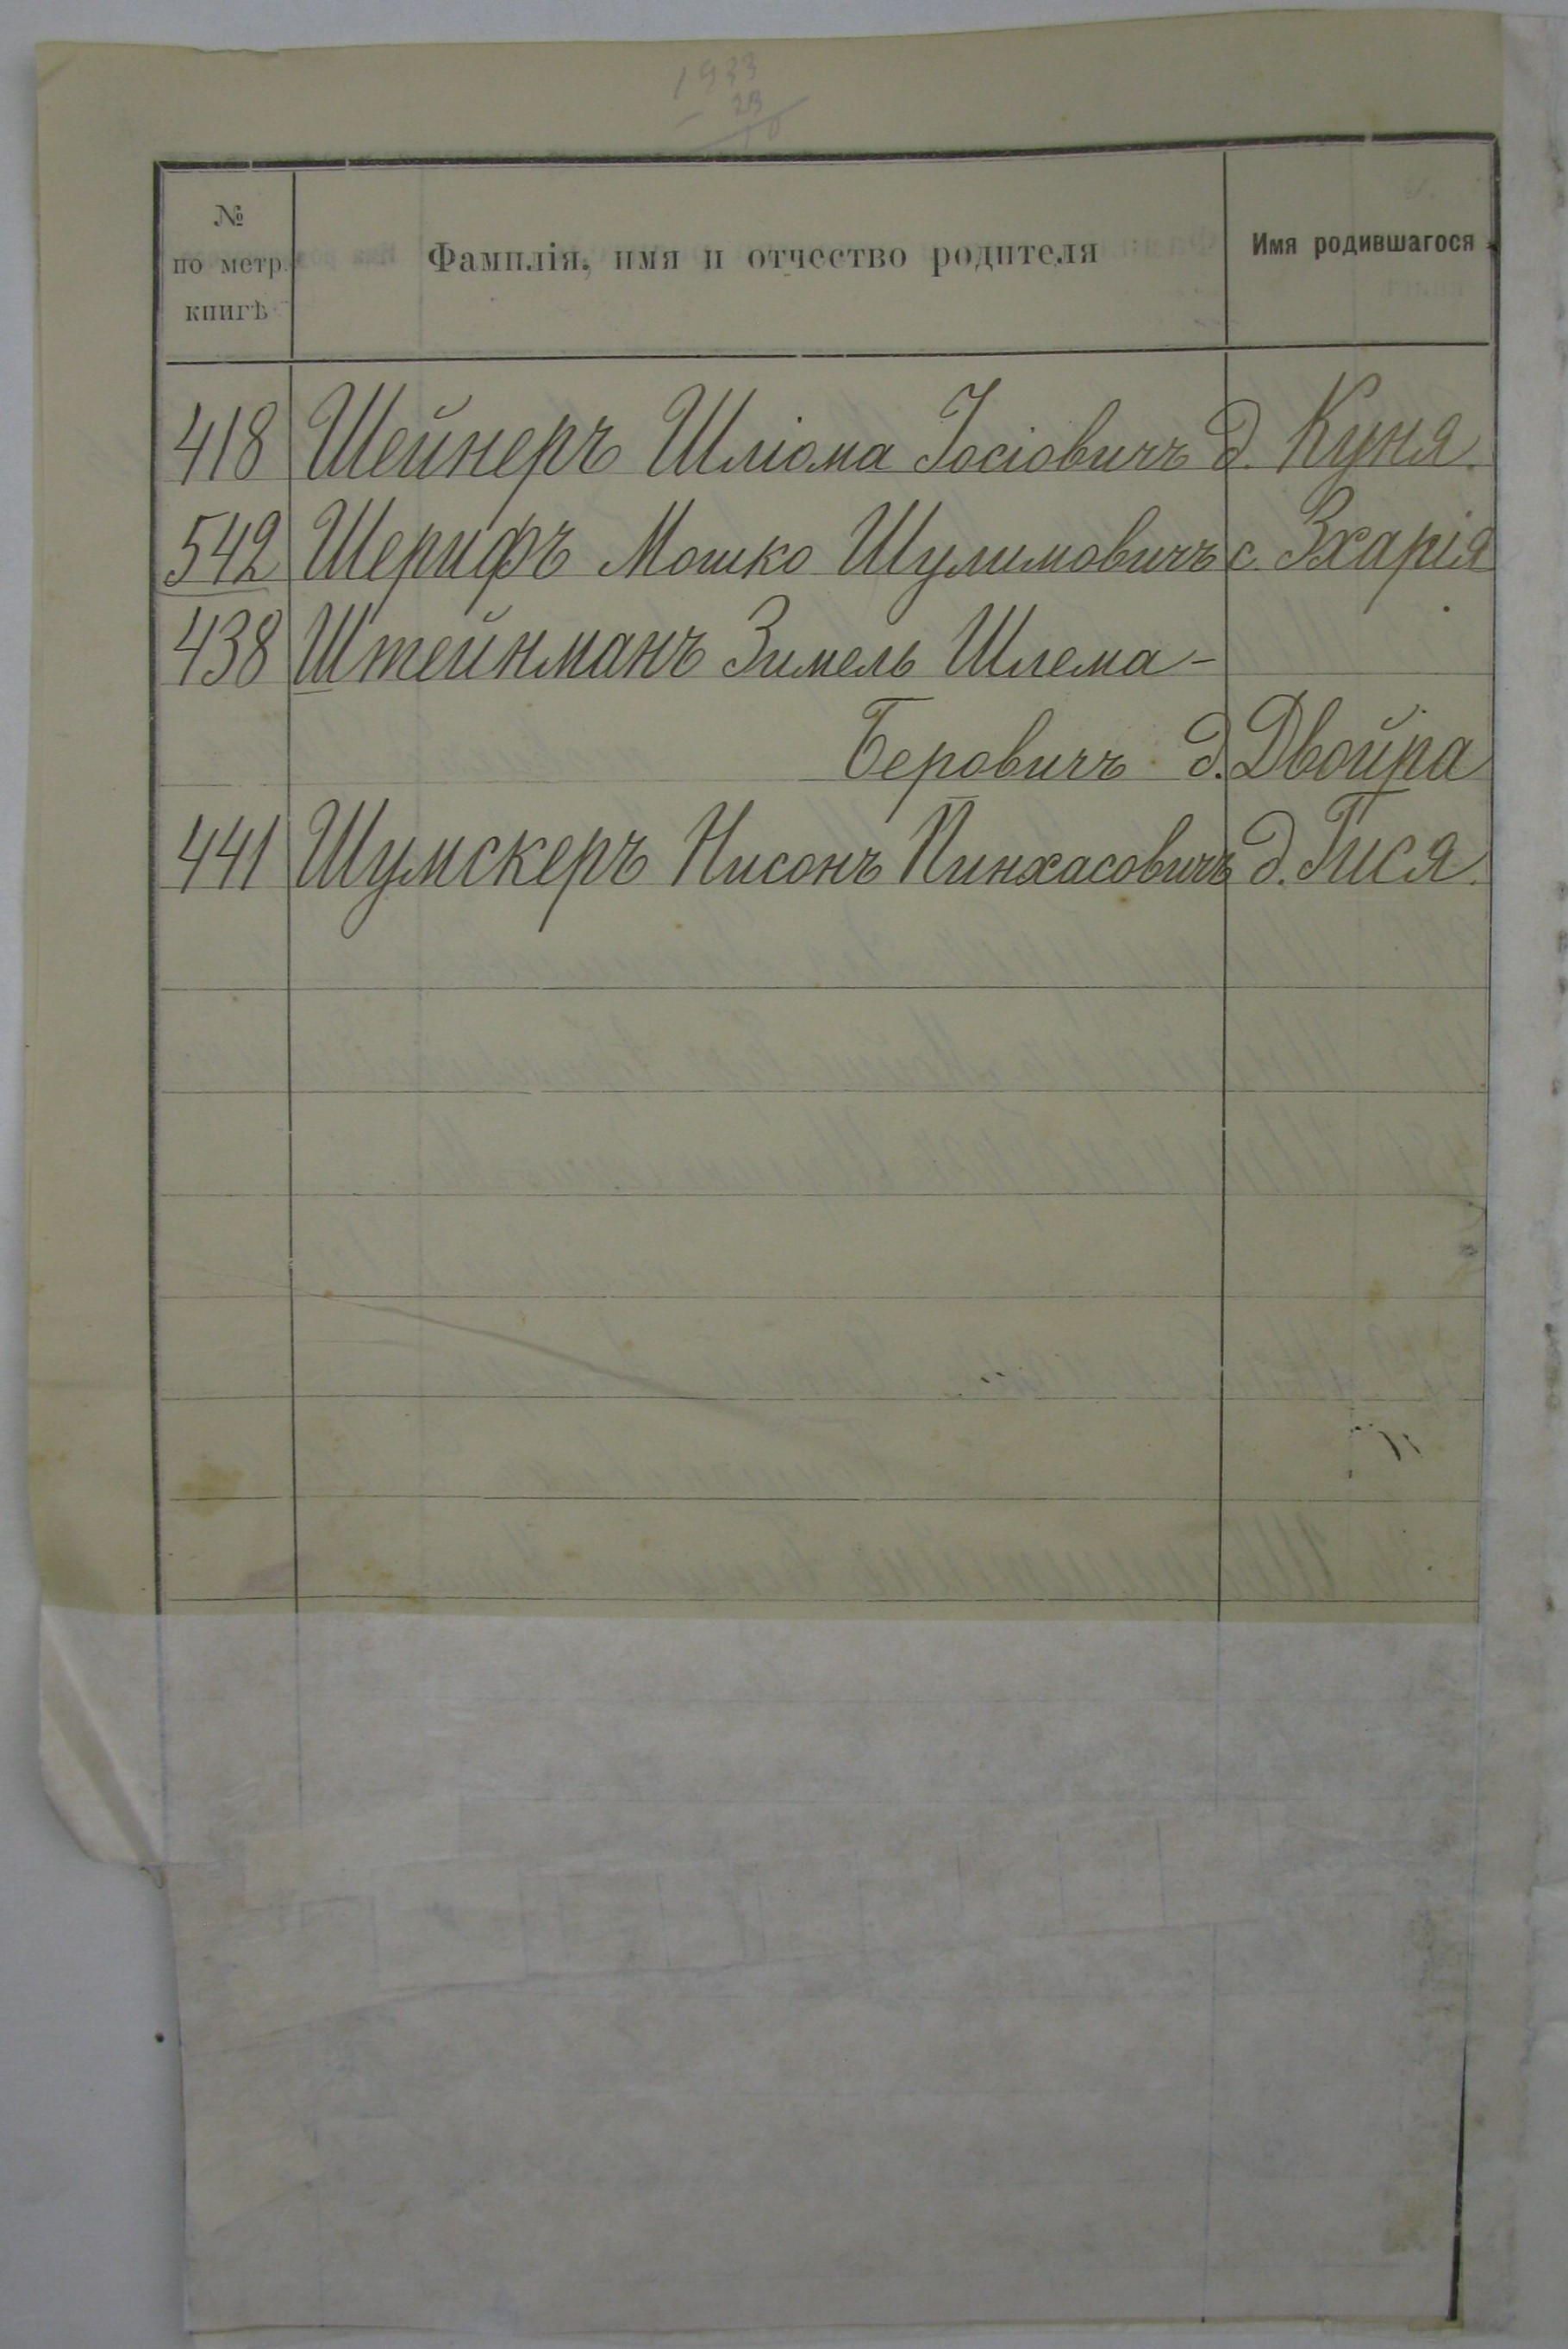 1933
23
10
№ по метр. книгѣ
Фамилія, имя и отчество родителя
Имя родившагося
418 Шейнеръ Шліома Іосіовичъ д. Куня.
542 Шерифъ Мошко Шулимовичъ с. Зхарія
438 Штейнманъ Зимель Шлема-
Беровичъ д. Двойра
441 Шумскеръ Нисонъ Пинхасовичъ д. Гися.